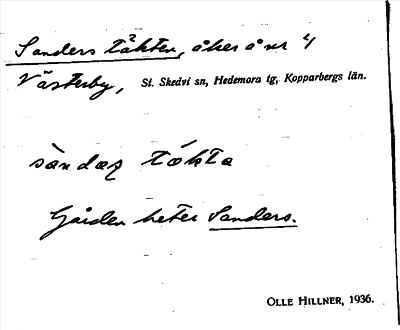 Sanders täkten, åker å nr 4
Västerby, St. Skedvi sn, Hedemora tg, Kopparbergs län.
sàndaʂ tákta
Gården heter Sanders.
OLLE HILLNER, 1936.